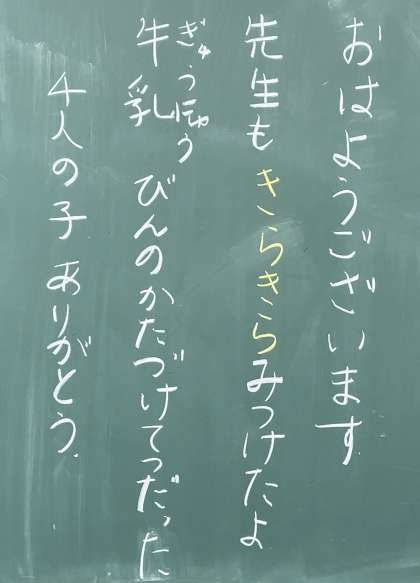 おはようございます
先生も きらきらみつけたよ
牛乳 びんのかたづけてつだった
ぎゅうにゅう
4人の子 ありがとう.